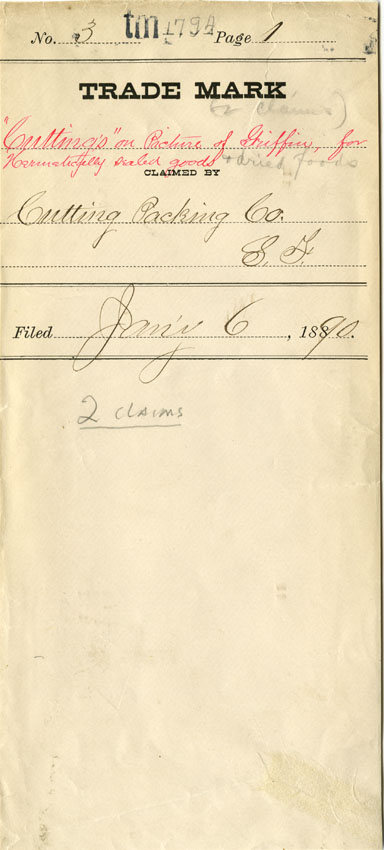 No. 3 tm 1794 Page 1
TRADE MARK
(2 claims)
"Cutting's" on Picture of Griffin, for
Hermetically sealed goods + dried foods
CLAIMED BY
Cutting Packing Co.
S. F.
Filed Jan'y 6, 1890.
2 claims